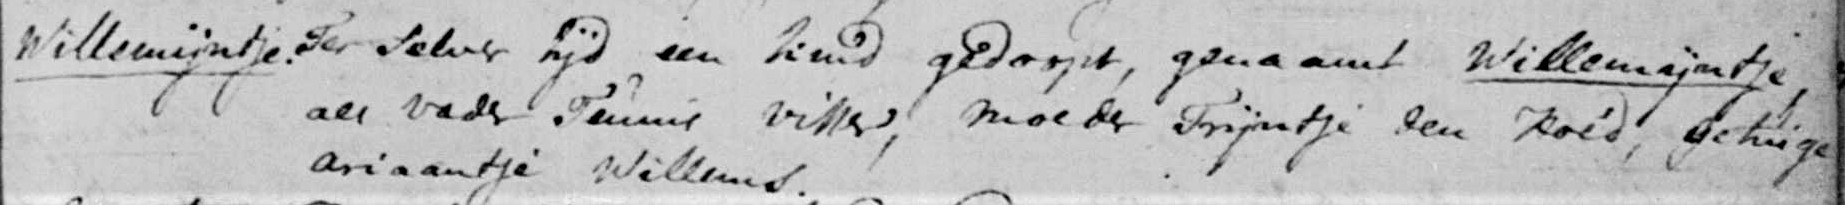 Willemijntje. Ter selver tijd een kind gedoopt, genaamt Willemijntje,
als vader Teunis visser, moeder Trijntje den Hoed, getuige
ariaantje Willems.